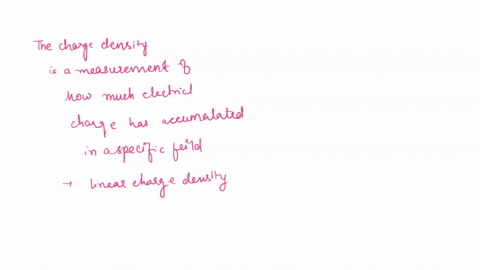 The charge density
is a measurement of
how much electricl
charge has accumalated
in a specific feild
→ linear charge density